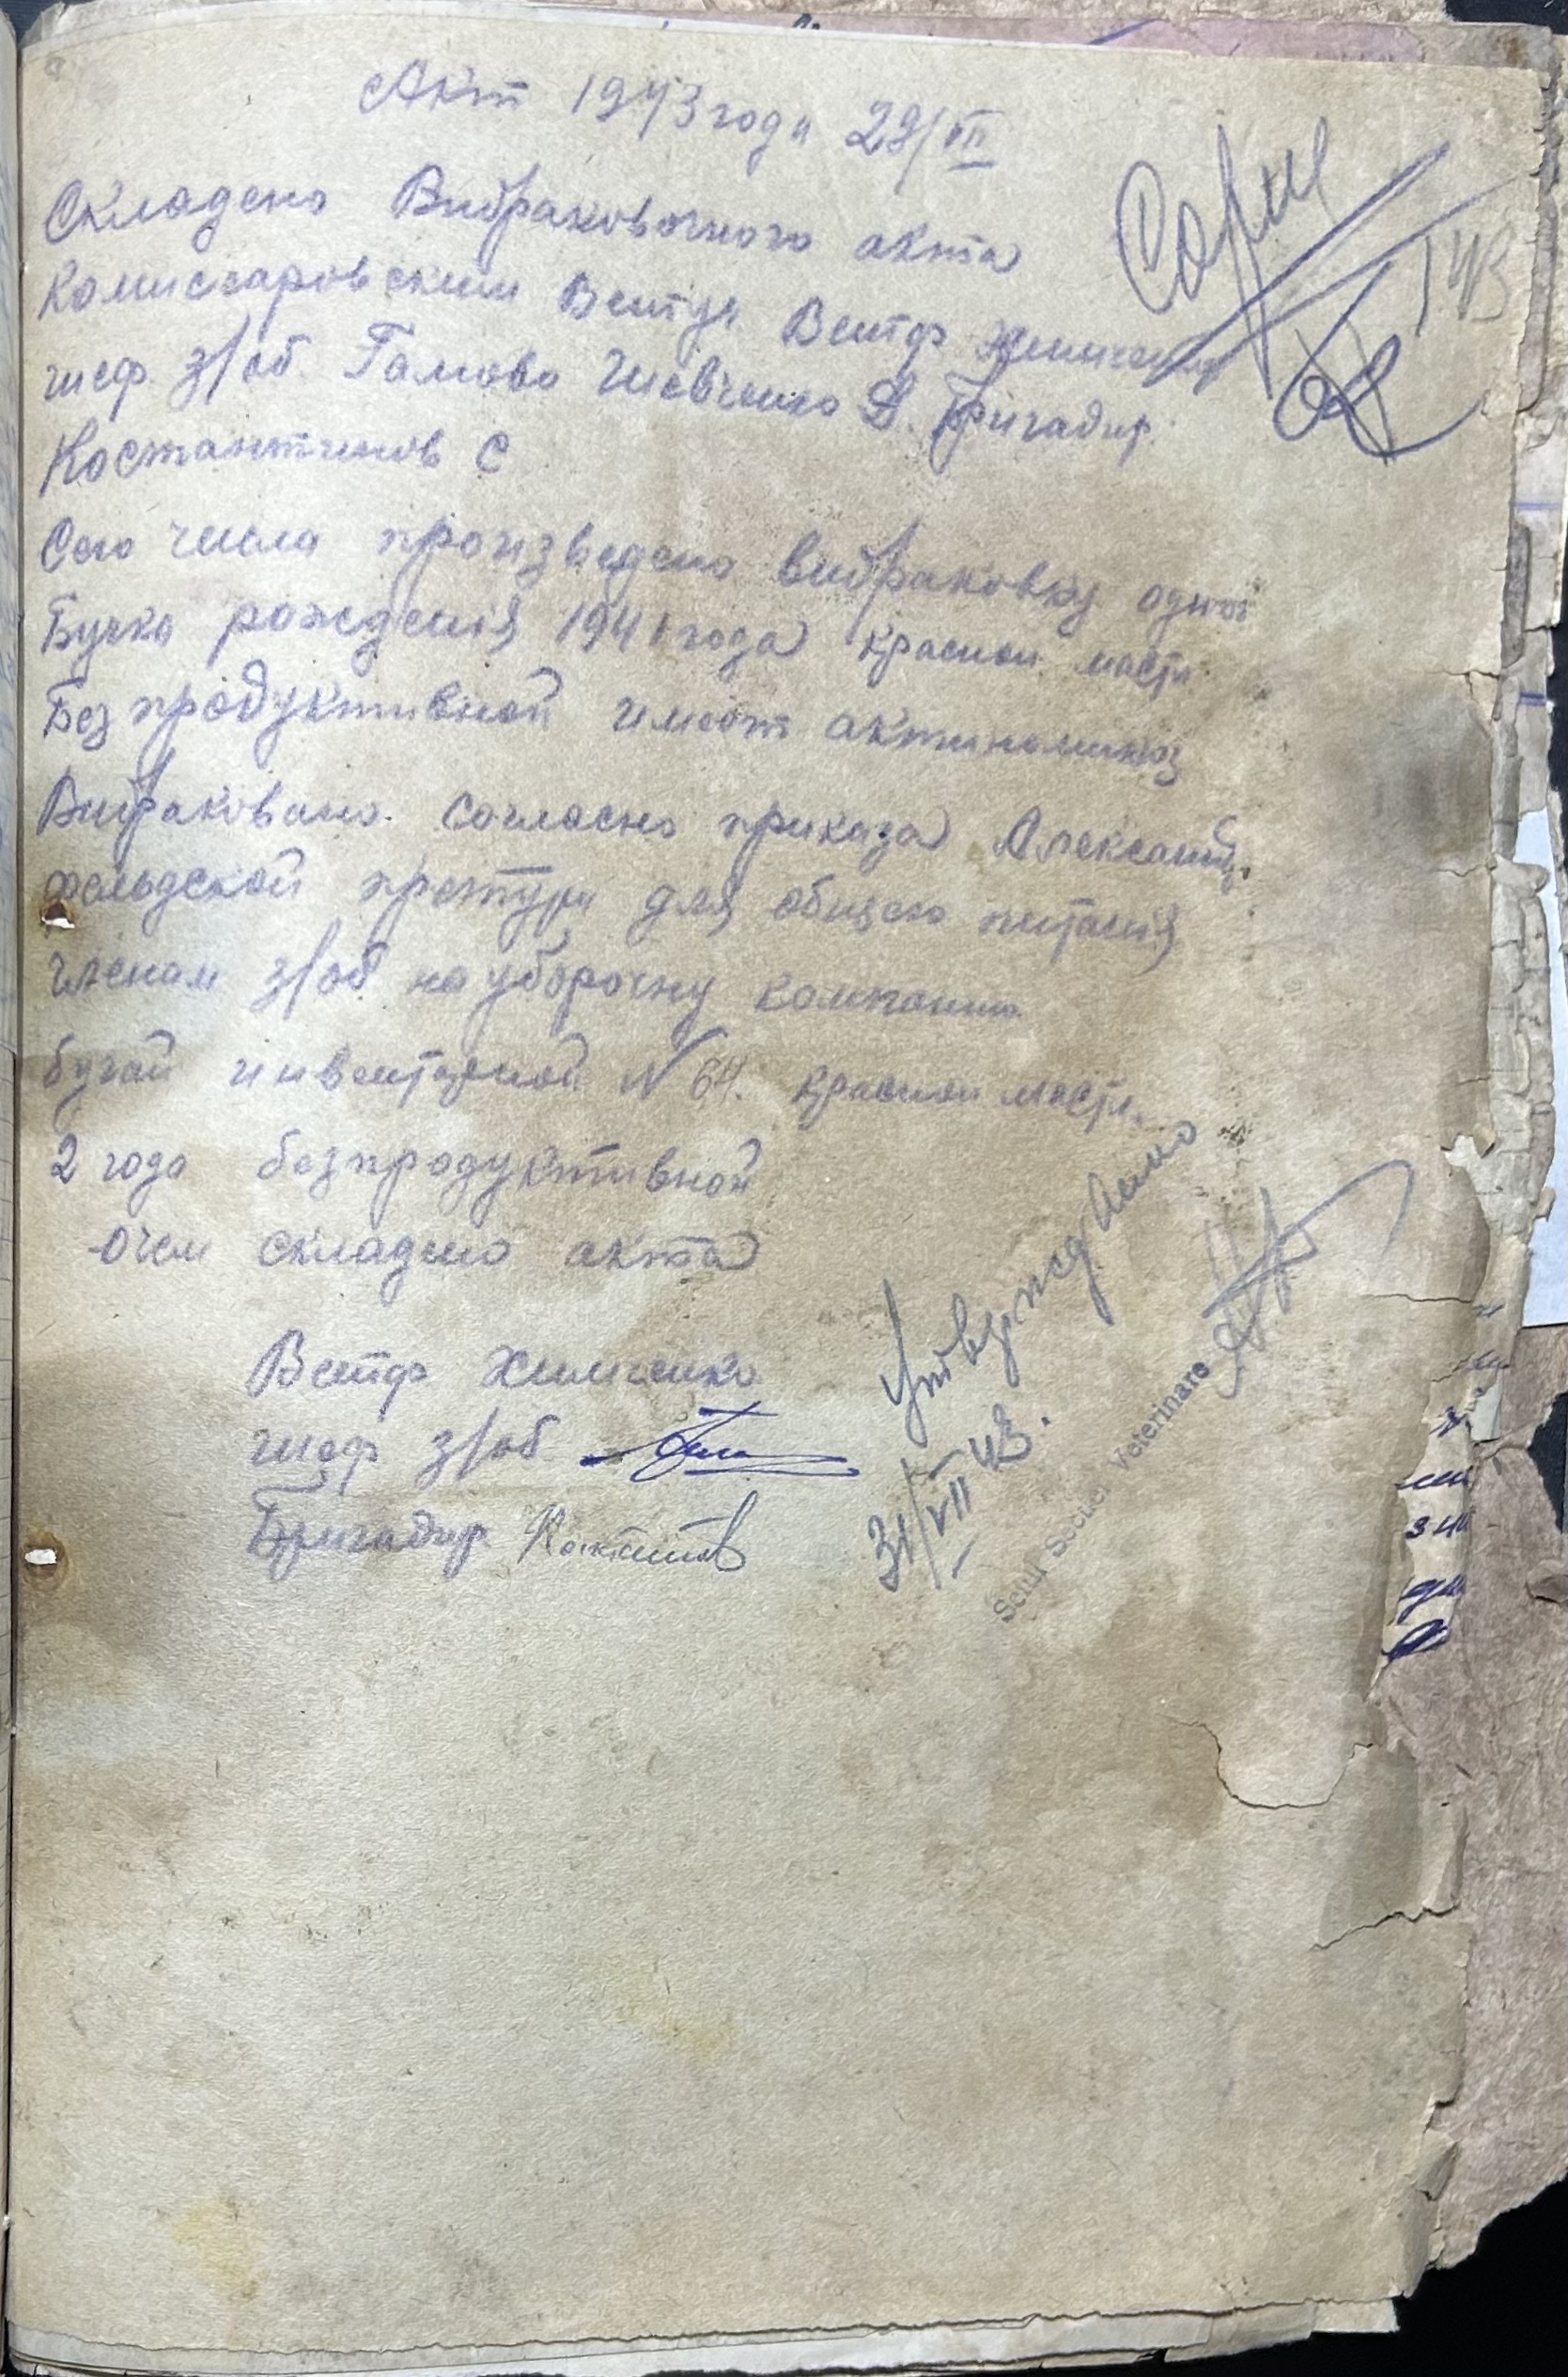 Акт 1943 года 29/VII
Складено Вибраковочного акта
Комиссаровским Ветпун Ветф Химченко
шеф з/об Гамово Шевченко Д. Бригадир
Костантинов С
Сего числа произведено вибраковку одног
Бучка рожденія 1941 года красной масти
Без продуктивной имеет актиномикоз
Вибраковано согласно приказа Александр
фельдской претури для общего питанія
членам з/об на уборочну компанию
бугай инвентарной N 64. красной масти.
2 года безпродуктивной
очем складено акта
Ветф Химченко
шеф з/об
Бригадир
Утверждаемо
31/VII 43.
Seful Sectiei Veterinare